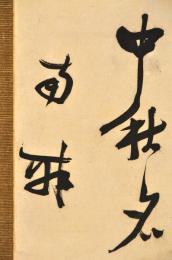 中秋名
南